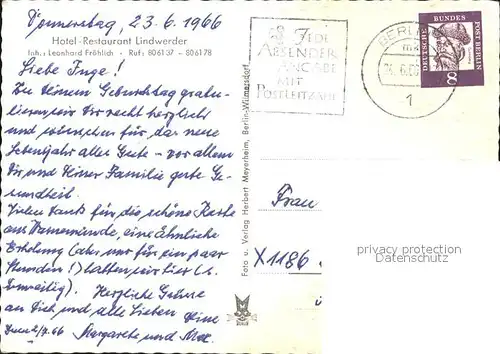 Donnerstag, 23.6.1966
Hotel-Restaurant Lindwerder
Inh.: Leonhard Fröhlich - Ruf: 806137 - 806178
Liebe Inge!
Zu Deinem Geburtstag gratu-
lieren wir Dir recht herzlich
und wünschen für das neue
Lebensjahr alles Gute - vor allem
Dir und Deiner Familie gute Ge-
sundheit.
Vielen Dank für die schöne Karte
aus Warnemünde, eine ähnliche
Erholung (aber nur für ein paar
Stunden!) hatten wir hier
Herzliche Grüsse
an Dich und alle Lieben Deine
2/7.66 Margarete und Max.
Foto u. Verlag Herbert Meyerheim, Berlin-Wilmersdorf
JEDE
ABSENDER-
ANGABE
MIT
POSTLEITZAHL
BERLIN
1
DEUTSCHE BUNDESPOST BERLIN
8
Frau
X1186
privacy protection
Datenschutz